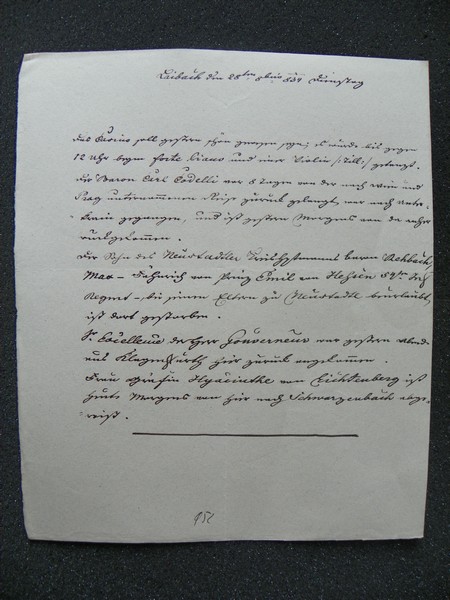 Laibach den 28ten 839 Dienstag
Das Casino soll gestern schön gewesen seyn; es wurde bis gegen
12 Uhr beym forte Piano und einer Violin getanzt.
Der Baron Carl Codelli vor 8 Tagen von der nach Wien und
Prag unternommenen Reise zurück gelangt, war nach Unter-
krain gegangen, und ist gestern Morgens von da wieder
rückgekommen.
Der Sohn des Neustadtler Kreishauptmanns Baron Rechbach
Max – Fähnrich von Prinz Emil von Hessen 54ten Inf.
Regmt – bei seinen Eltern zu Neustadtl beurlaubt,
ist dort gestorben.
Se Excellenz der Herr Gouverneur war gestern abends
aus Klagenfurth hier zurück angekommen.
Frau Gräfin Hyacinthe von Lichtenberg ist
heute Morgens von hier nach Schwarzenbach abge-
reist.